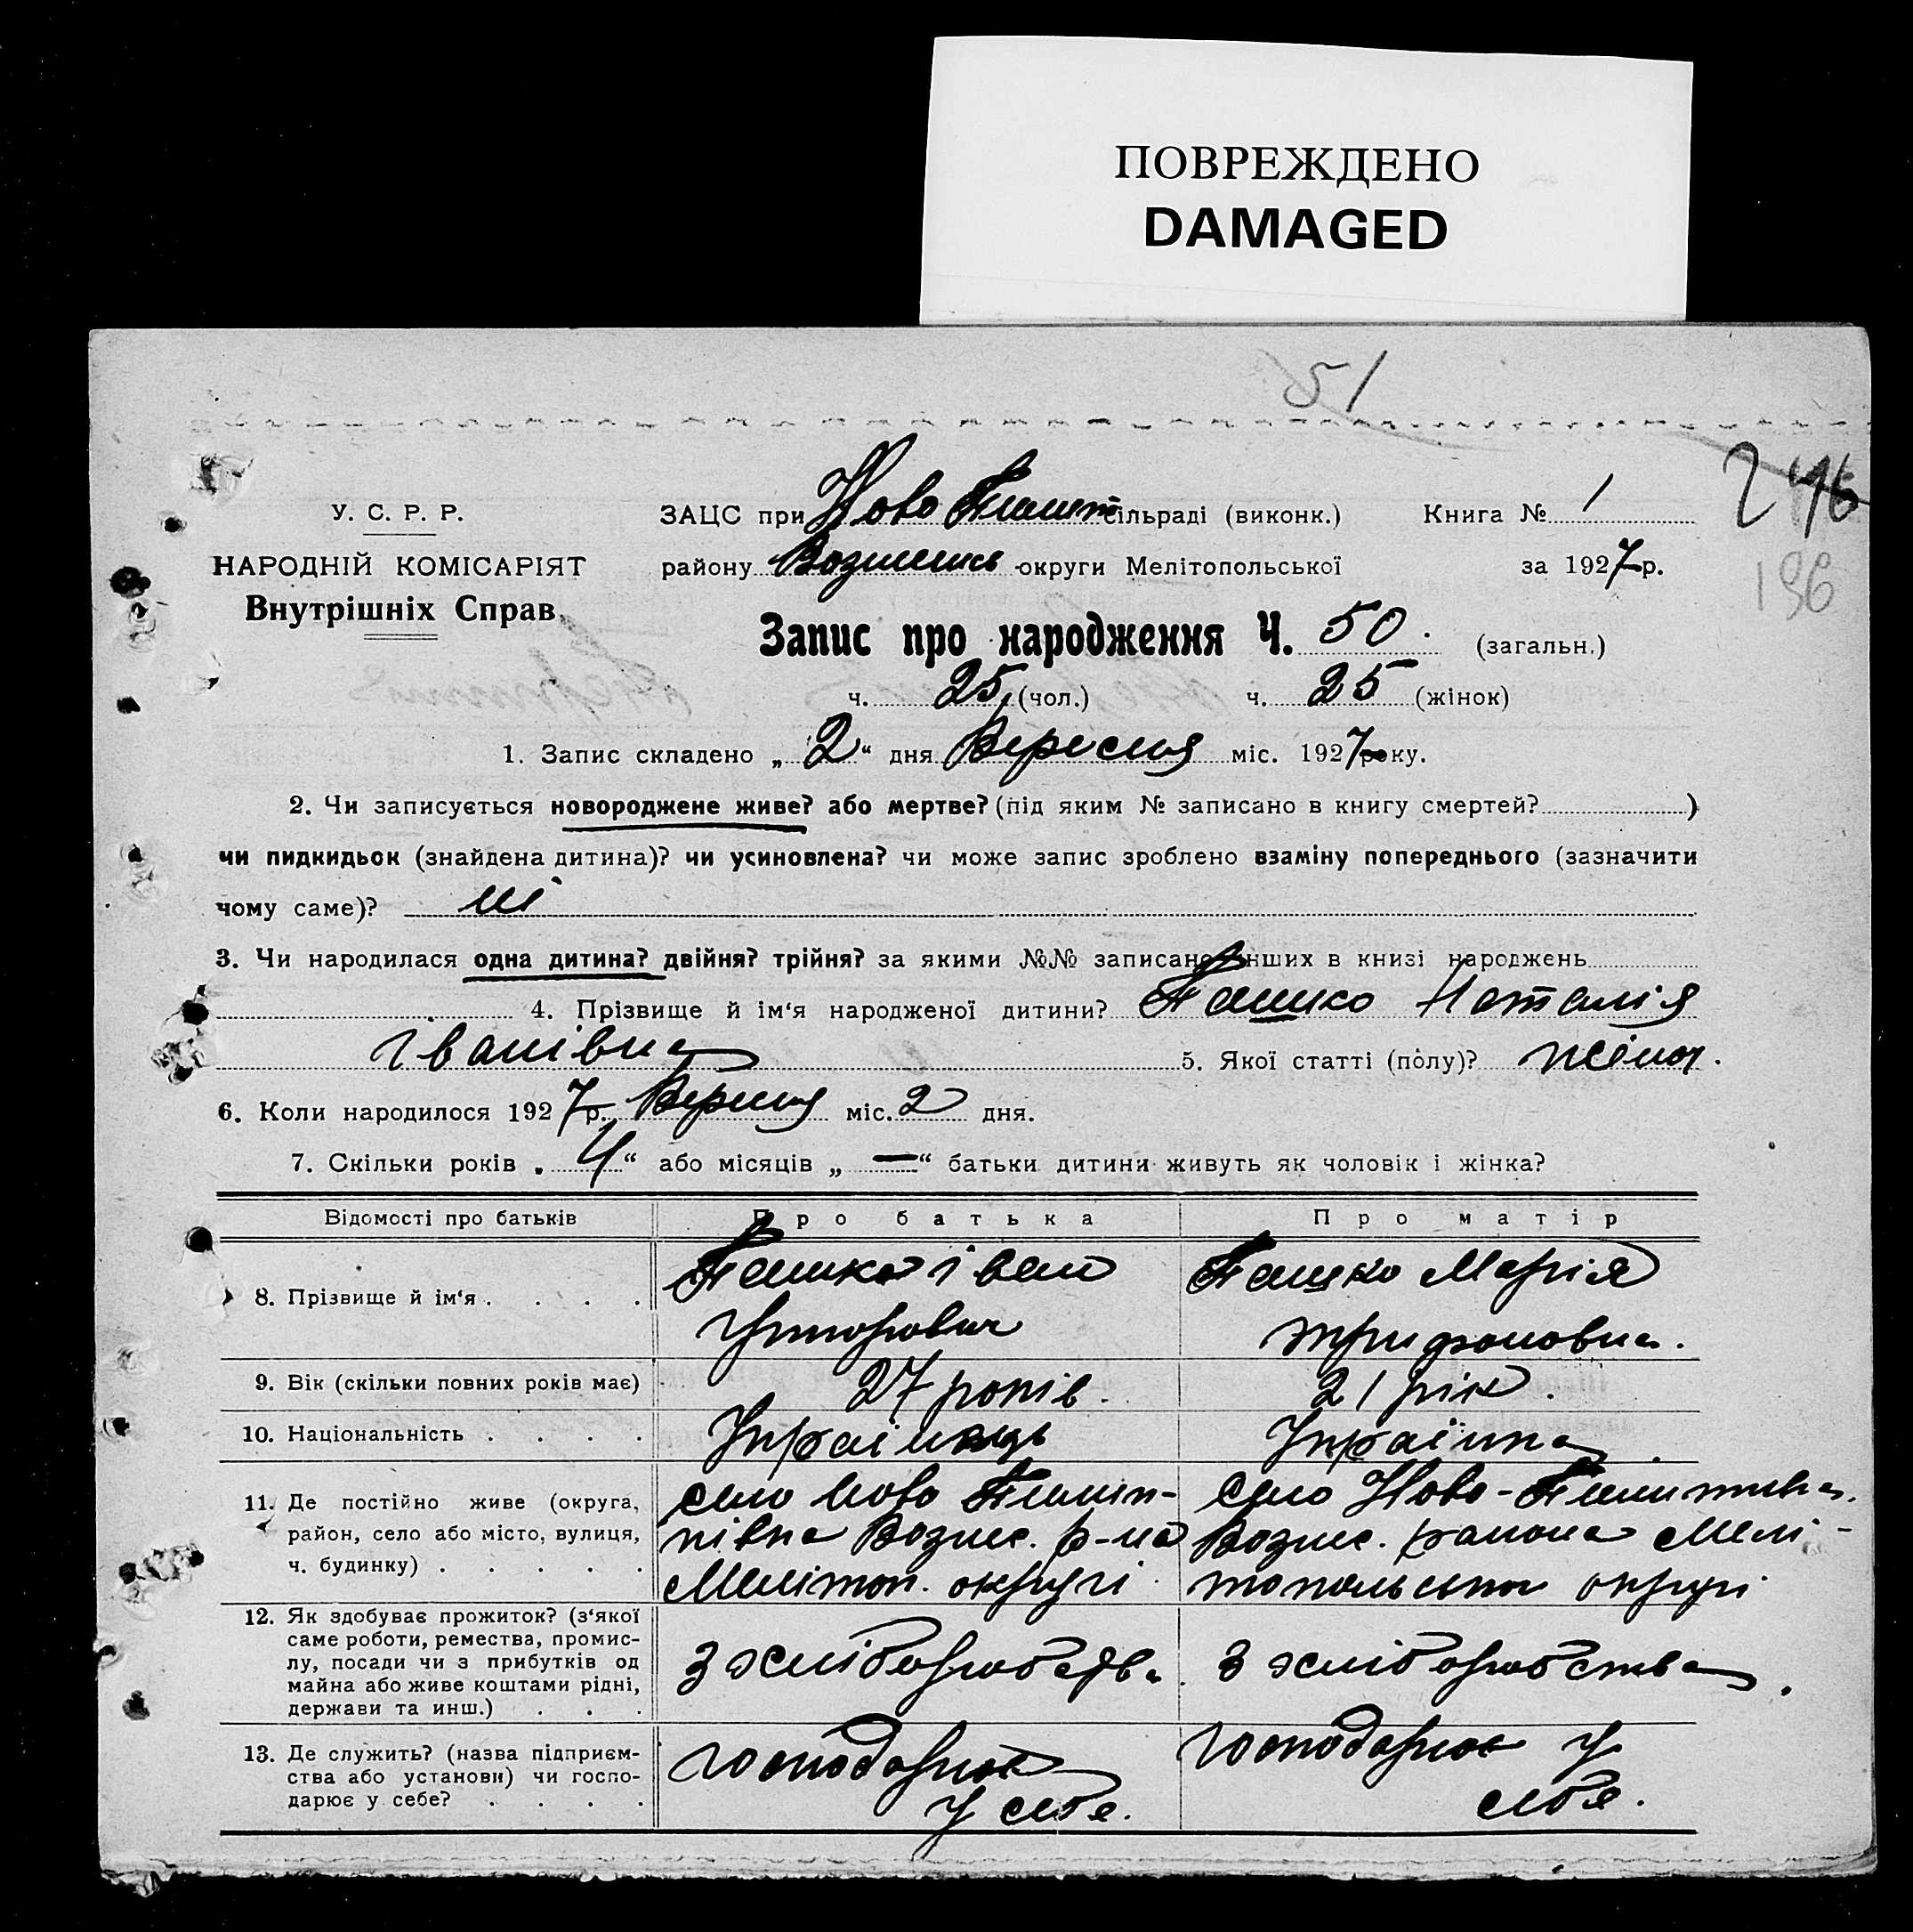 ПОВРЕЖДЕНО
DAMAGED
51
246
196
У. С. Р. Р.
НАРОДНІЙ КОМІСАРІЯТ
Внутрішніх Справ.
ЗАЦС при Ново сільраді (виконк.) Книга № 1
району округи Мелітопольської за 1927 р.
Запис про народження Ч. 50. (загальн.)
ч. 25 (чол.) ч. 25 (жінок)
1. Запис складено „ 2 “ дня Вересня міс. 1927 року.
2. Чи записується новороджене живе? або мертве? (під яким № записано в книгу смертей? )
чи пидкидьок (знайдена дитина)? чи усиновлена? чи може запис зроблено взаміну попереднього (зазначити
чому саме)? ні
3. Чи народилася одна дитина? двійня? трійня? за якими №№ записано інших в книзі народжень
4. Прізвище й ім‘я народженої дитини? Пашко Наталія
Іванівна 5. Якої статті (полу)? жіноч.
6. Коли народилося 1927 р. Вересня міс. 2 дня.
7. Скільки років „ 4 “ або місяців „ — “ батьки дитини живуть як чоловік і жінка?
Відомості про батьків Про батька Про матір
8. Прізвище й ім‘я . . . . Пашко Іван Пашко Марія
Трифоновна.
9. Вік (скільки повних років має) 27 років. 21 рік.
10. Національність . . . . Українець Українка
11. Де постійно живе (округа, село Ново село Ново-
район, село або місто, вулиця, Вознес. р-на Вознес. района Мелі-
ч. будинку) . . . . . Мелітоп. округі топольськои округі
12. Як здобуває прожиток? (з‘якої
саме роботи, ремества, промис-
лу, посади чи з прибутків од
майна або живе коштами рідні,
держави та инш.) . . . З хліборобства. З хліборобства.
13. Де служить? (назва підприєм-
ства або установи) чи госпо-
дарює у себе? . . . . господарює у себе. господарює у себя.